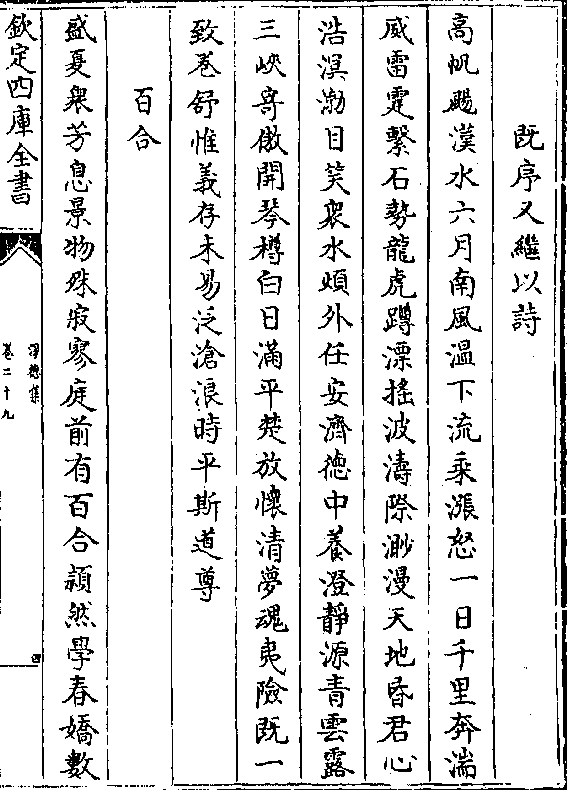 既序又繼以詩
高帆颺漢水六月南風溫下流乘漲怒一日千里奔湍
威雷霆繫石勢龍虎蹲漂搖波濤際渺漫天地昏君心
浩溟渤目笑衆水煩外任安濟德中養澄靜源青雲露
三峽寄傲開琴樽白日滿平楚放懷清夢魂夷險既一
致卷舒惟義存未易泛滄浪時平斯道尊
百合
盛夏衆芳息景物殊寂寥庭前有百合頴然學春嬌數
欽定四庫全書
淨德集
卷二十九
四